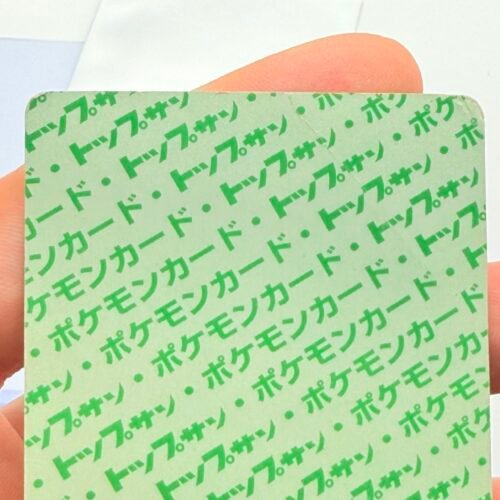 トップサン
・トップサン・
ド・トップサン・ポケ
カード・トップサン・ポケ
モンカード・トップサン・ポケ
ケモンカード・トップサン・ポケ
・ポケモンカード・トップサン
・ポケモンカード・トップサン
・ポケモンカード・トッ
プサン・ポケモンカード・ト
トップサン・ポケモンカード
・トップサン・ポケモンカー
・トップサン・ポケモン
トップサン・ポケ